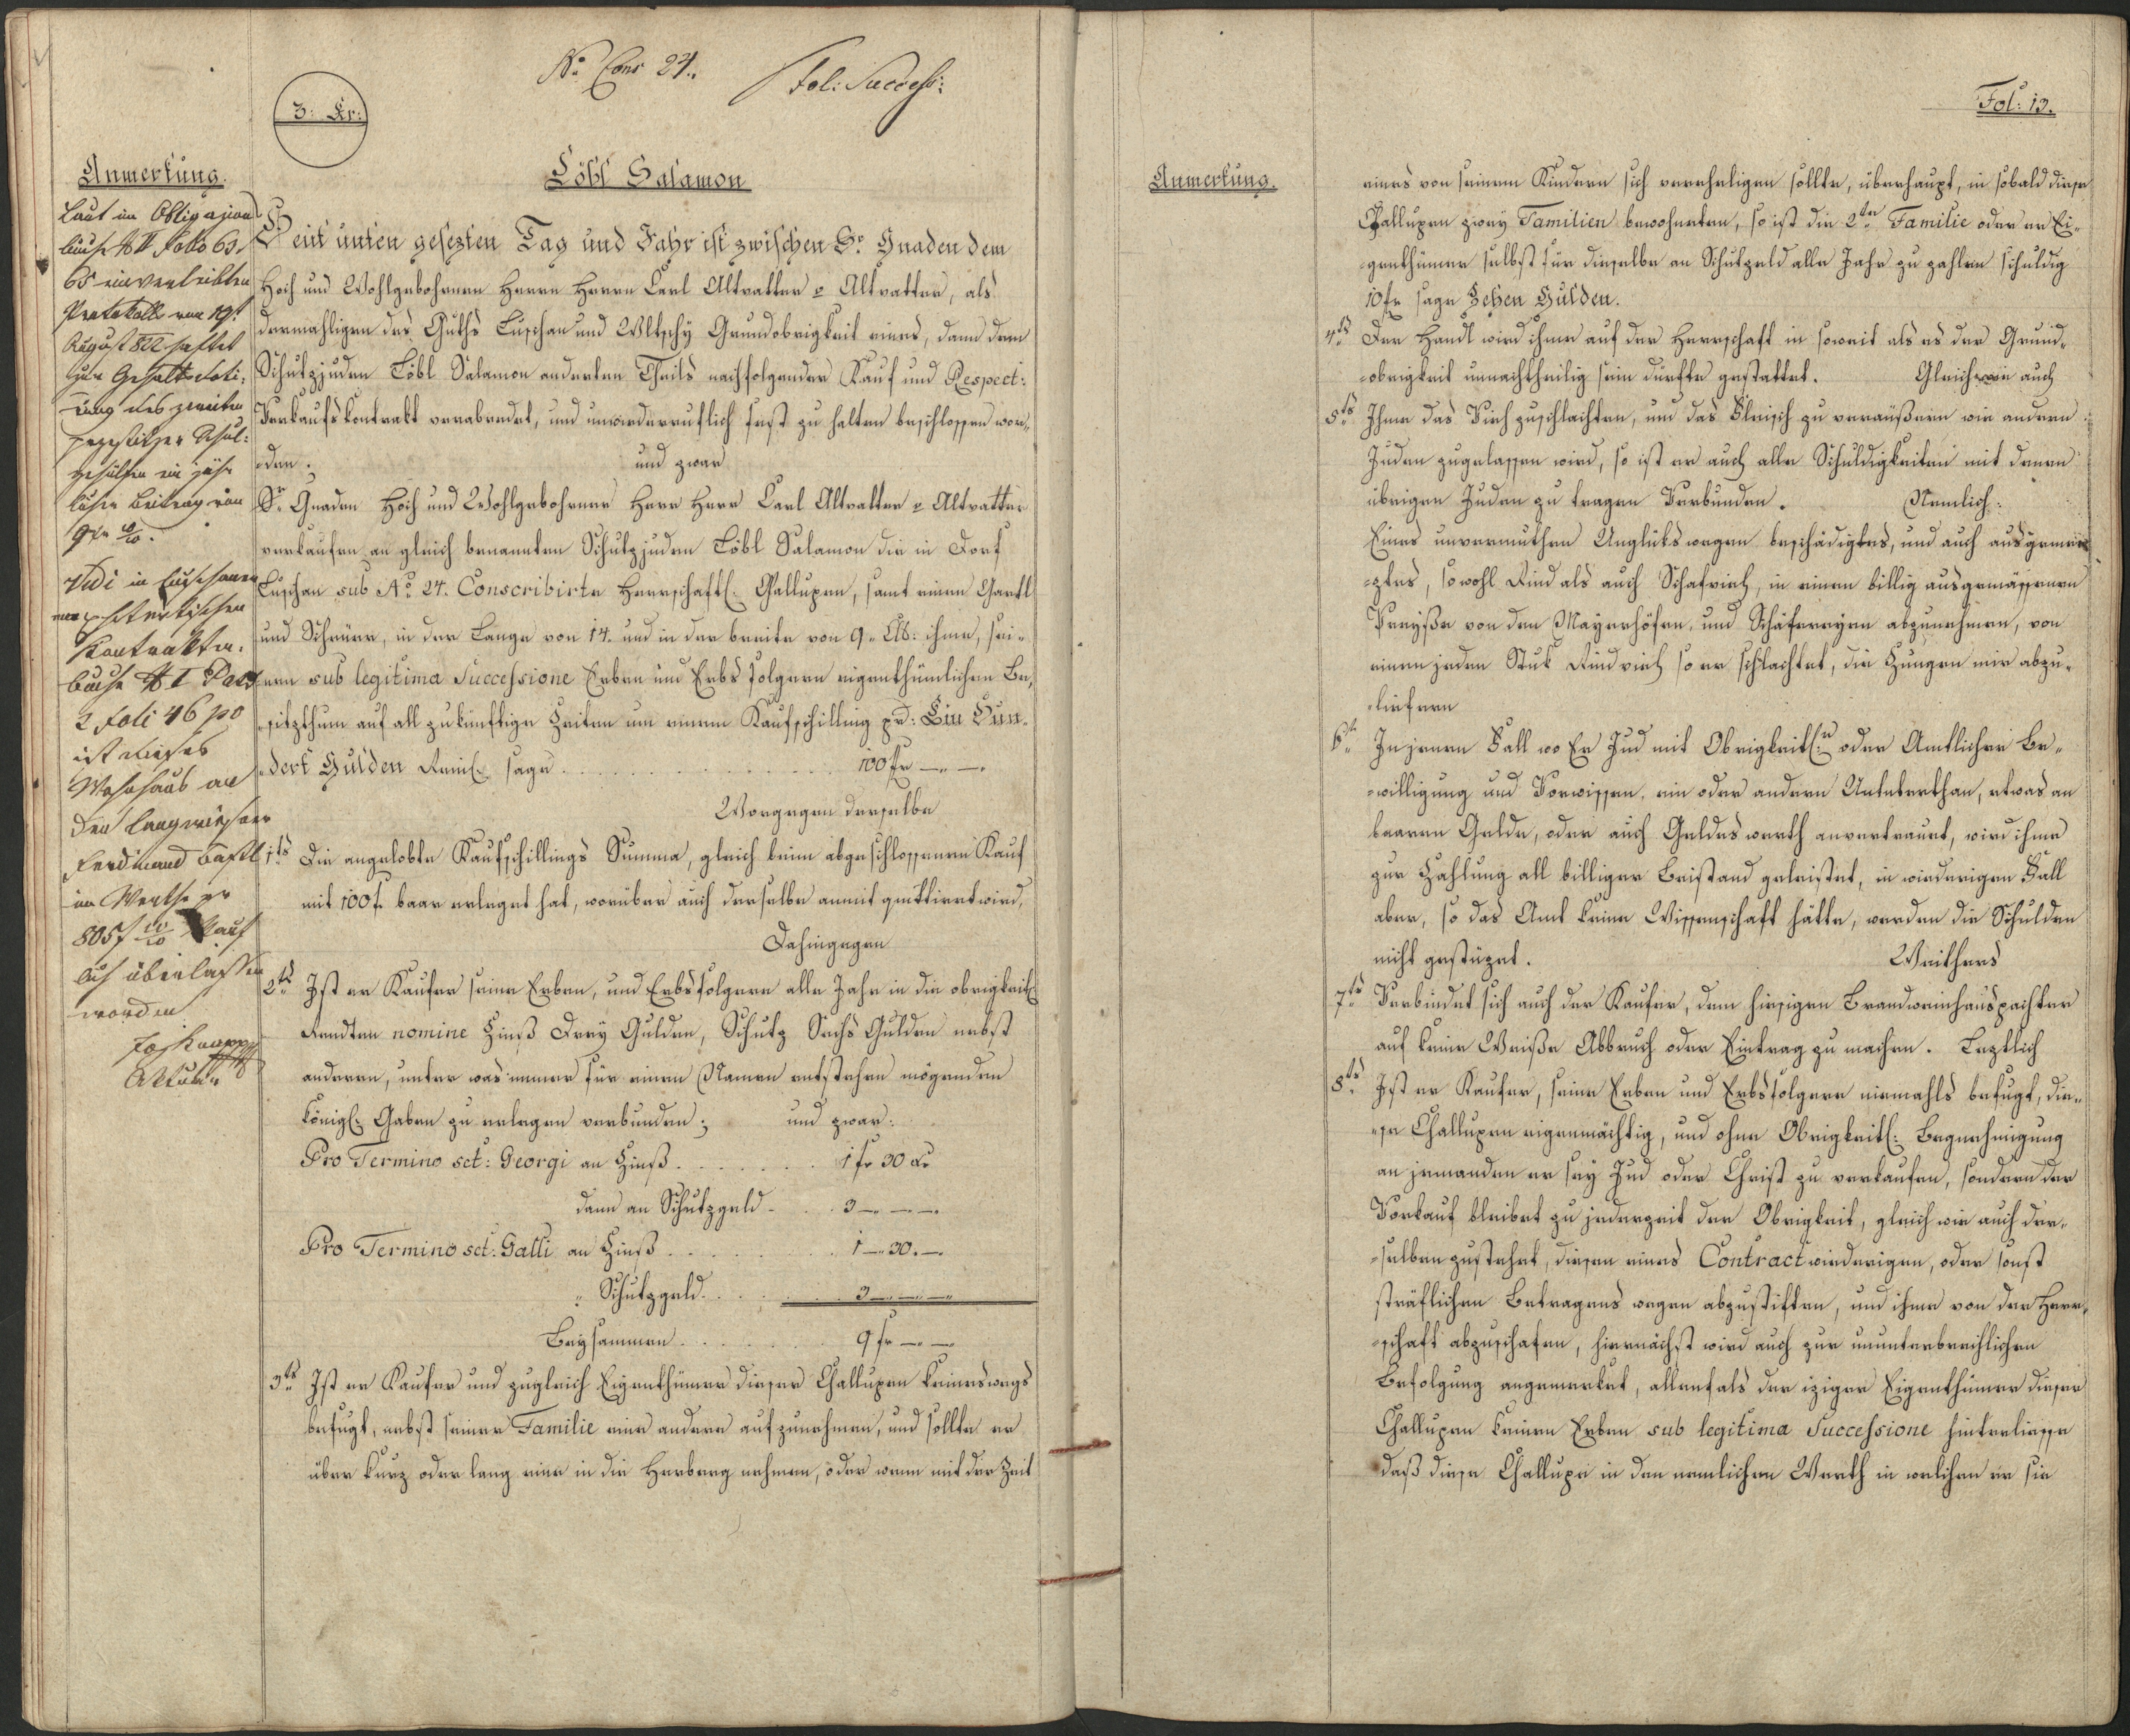 No Cons 24.
Fol: Success:
3: Kr:
Anmerkung.
Laut im Obligazions
buche N II Folio 63.
65 einverleibten
Protokolls vom 19t
August 822 haftet
zur Gehaltsdoti-
rung des zweiten
Schul-
gehülfen ein jähr
licher Beitrag von
Vidi in Luschaner
emphiteutischen
Kontrakten
buche N I Pars
2 Foli 46 po
ist dieses
Wohnhaus an
den
Ferdinand
im Werthe pr
805 f Kauf
lich überlassen
worden
Löbl Salamon
Heut unten gesezten Tag und Jahr ist zwischen Sr Gnaden dem
Hoch und Wohlgebohrnen Herrn Herrn Carl Altvatter v Altvatter, als
dermahligen des Guths Luschan und Wltschy Grundobrigkeit eines, dann dem
Schutzjuden Löbl Salamon anderten Theils nachfolgender Kauf und Respect:
Verkaufskontrakt verabredet, und unwiederruflich fest zu halten beschlossen wor-
den. und zwar
Sr Gnaden Hoch und Wohlgebohrner Herr Herr Carl Altvatter v Altvatter
verkaufen an gleich benannten Schutzjuden Löbl Salamon die in Dorf
Luschan sub No 24. Conscribirte Herrschaftl: Challupen, samt einen Gartl
und Scheuer, in der Länge von 14. und in der breite von 9. ihme, sei-
nen sub legitima Successione Erben und Erbsfolgern eigenthümlichen Be-
sitzthum auf all zukünftige Zeiten um einem Kaufschilling pr: Ein Hun-
dert Gulden Reinl: sage . . . 100 fr —.—.
Wogegen derselbe
1tens Die angelobte Kaufschillings Summa, gleich beim abgeschlossenen Kauf
mit 100 f. baar erleget hat, worüber auch derselbe anmit quittiret wird,
Dahingegen
2tens Ist er Kaufer seine Erben, und Erbsfolgern alle Jahr in die obrigkeitl:
Rendten nomine Zinß Drey Gulden, Schutz Sechs Gulden nebst
anderen, unter was immer für einen Namen entstehen mögenden
Königl: Gaben zu erlegen verbunden; und zwar:
Pro Termino sct: Georgi an Zinß . . . 1 fr 30 Kr
dann an Schutzgeld . . . 3 —.—.—.
Pro Termino sct: Galli an Zinß . . . 1 —. 30. —.
" Schutzgeld . . . 3 —.—.—
Beysammen . . . 9 fr —.—.
3tens Ist er Kaufer und zugleich Eigenthümer dieser Challupen keineswegs
befugt, nebst seiner Familie eine andere aufzunehmen, und sollte er
über kurz oder lang eine in die Herberg nehmen, oder wenn mit der Zeit
Fol: 13.
Anmerkung.
eines von seinem Kindern sich verehligen sollte, überhaupt, in sobald diese
Challupen zwey Familien bewohneten, so ist die 2te Familie oder er Ei-
genthümer selbst für dieselbe an Schutzgeld alle Jahr zu zahlen schuldig
10 fr sage Zehen Gulden.
4tens Der Handl wird ihme auf der Herrschaft in soweit als es der Grund-
obrigkeit unnachtheilig sein durfte gestattet. Gleichwie auch
5tens Ihme das Vieh zuschlachten, und das Fleisch zu veräußern wie andern
Juden zugelassen wird, so ist er auch alle Schuldigkeiten mit denen
übrigen Juden zu tragen Verbunden. Nemlich:
Eines unvermuthen Unglückswegen beschädigtes, und auch ausgemer-
ztes, sowohl Rind als auch Schafvieh, in einem billig ausgemässenen
Preyße von den Mayerhöfen, und Schäfereyen abzunehmen, von
einem jeden Stuk Rindvieh so er schlachtet, die Zungen mir abzu-
liefern
6tens In jenem Fall wo Er Jud mit Obrigkeitl:r oder Amtlicher Be-
willigung und Vorwissen, ein oder andern Unterthan, etwas an
baaren Gelde, oder auch Geldes werth anvertrauet, wird ihme
zur Zahlung all billiger Beistand geleistet, in wiedrigen Fall
aber, so das Amt keine Wissenschaft hätte, werden die Schulden
nicht gestüzet. Weithers
7tens Verbindet sich auch der Kaufer, dem hiesigen Brandweinhauspachter
auf keine Weiße Abbruch oder Eintrag zu machen. Leztlich
8tens Ist er Kaufer, seine Erben und Erbsfolgern niemahls befugt, die-
se Challupen eigenmächtig, und ohne Obrigkeitl: Begnehmigung
an jemanden er sey Jud oder Christ zu verkaufen, sondern der
Vorkauf bleibet zu jederzeit der Obrigkeit, gleich wie auch der-
selben zustehet, diesen eines Contract wiedrigen, oder sonst
sträflichen Betragens wegen abzustiften, und ihme von der Herr-
schaft abzuschafen, hiernächst wird auch zur ununterbrechlichen
Befolgung angemerket, allenfals der izige Eigenthümer dieser
Challupen keinen Erben sub legitima Successione hinterliesse
daß diese Challupe in den nemlichen Werth in welchen er sie